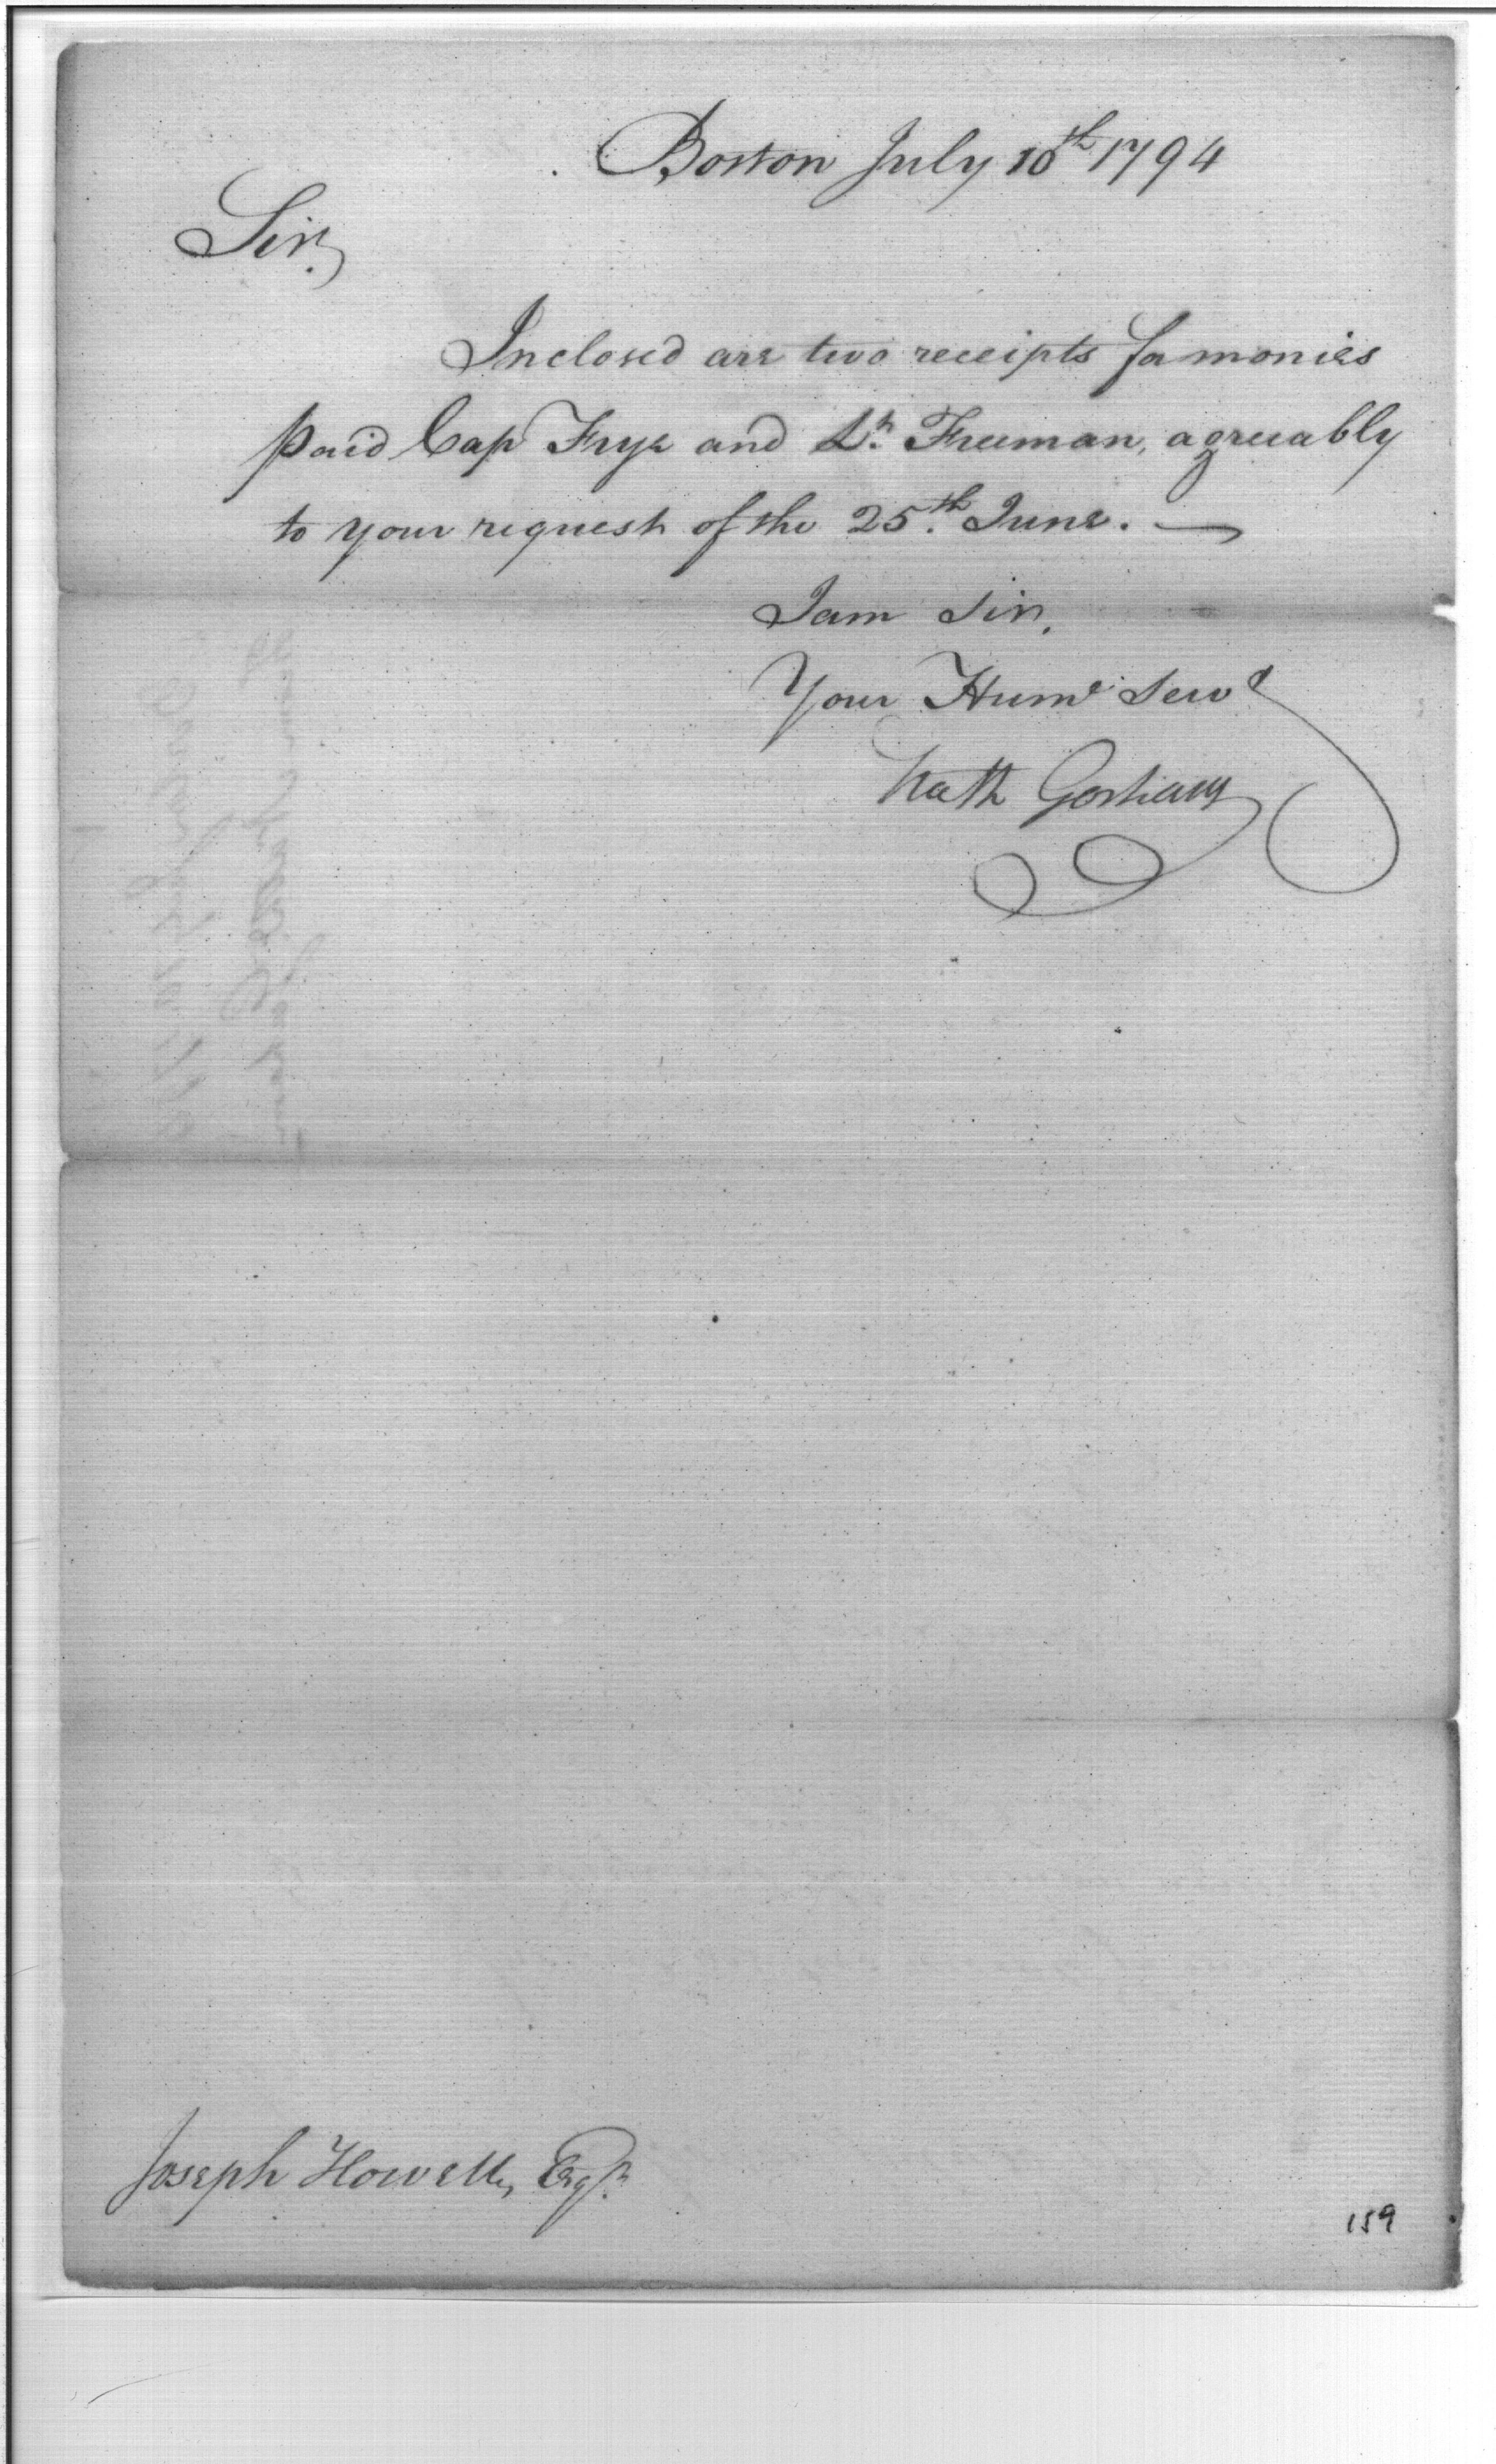 Boston July 10th 1794
Sir,
Inclosed are two receipts for monies
paid Cap Frye and Lt. Freeman, agreeably
to your request of the 25.th June. —
I am Sir,
Your Hume Servt
Nath Gorham
Joseph Howell, Esqr.
159